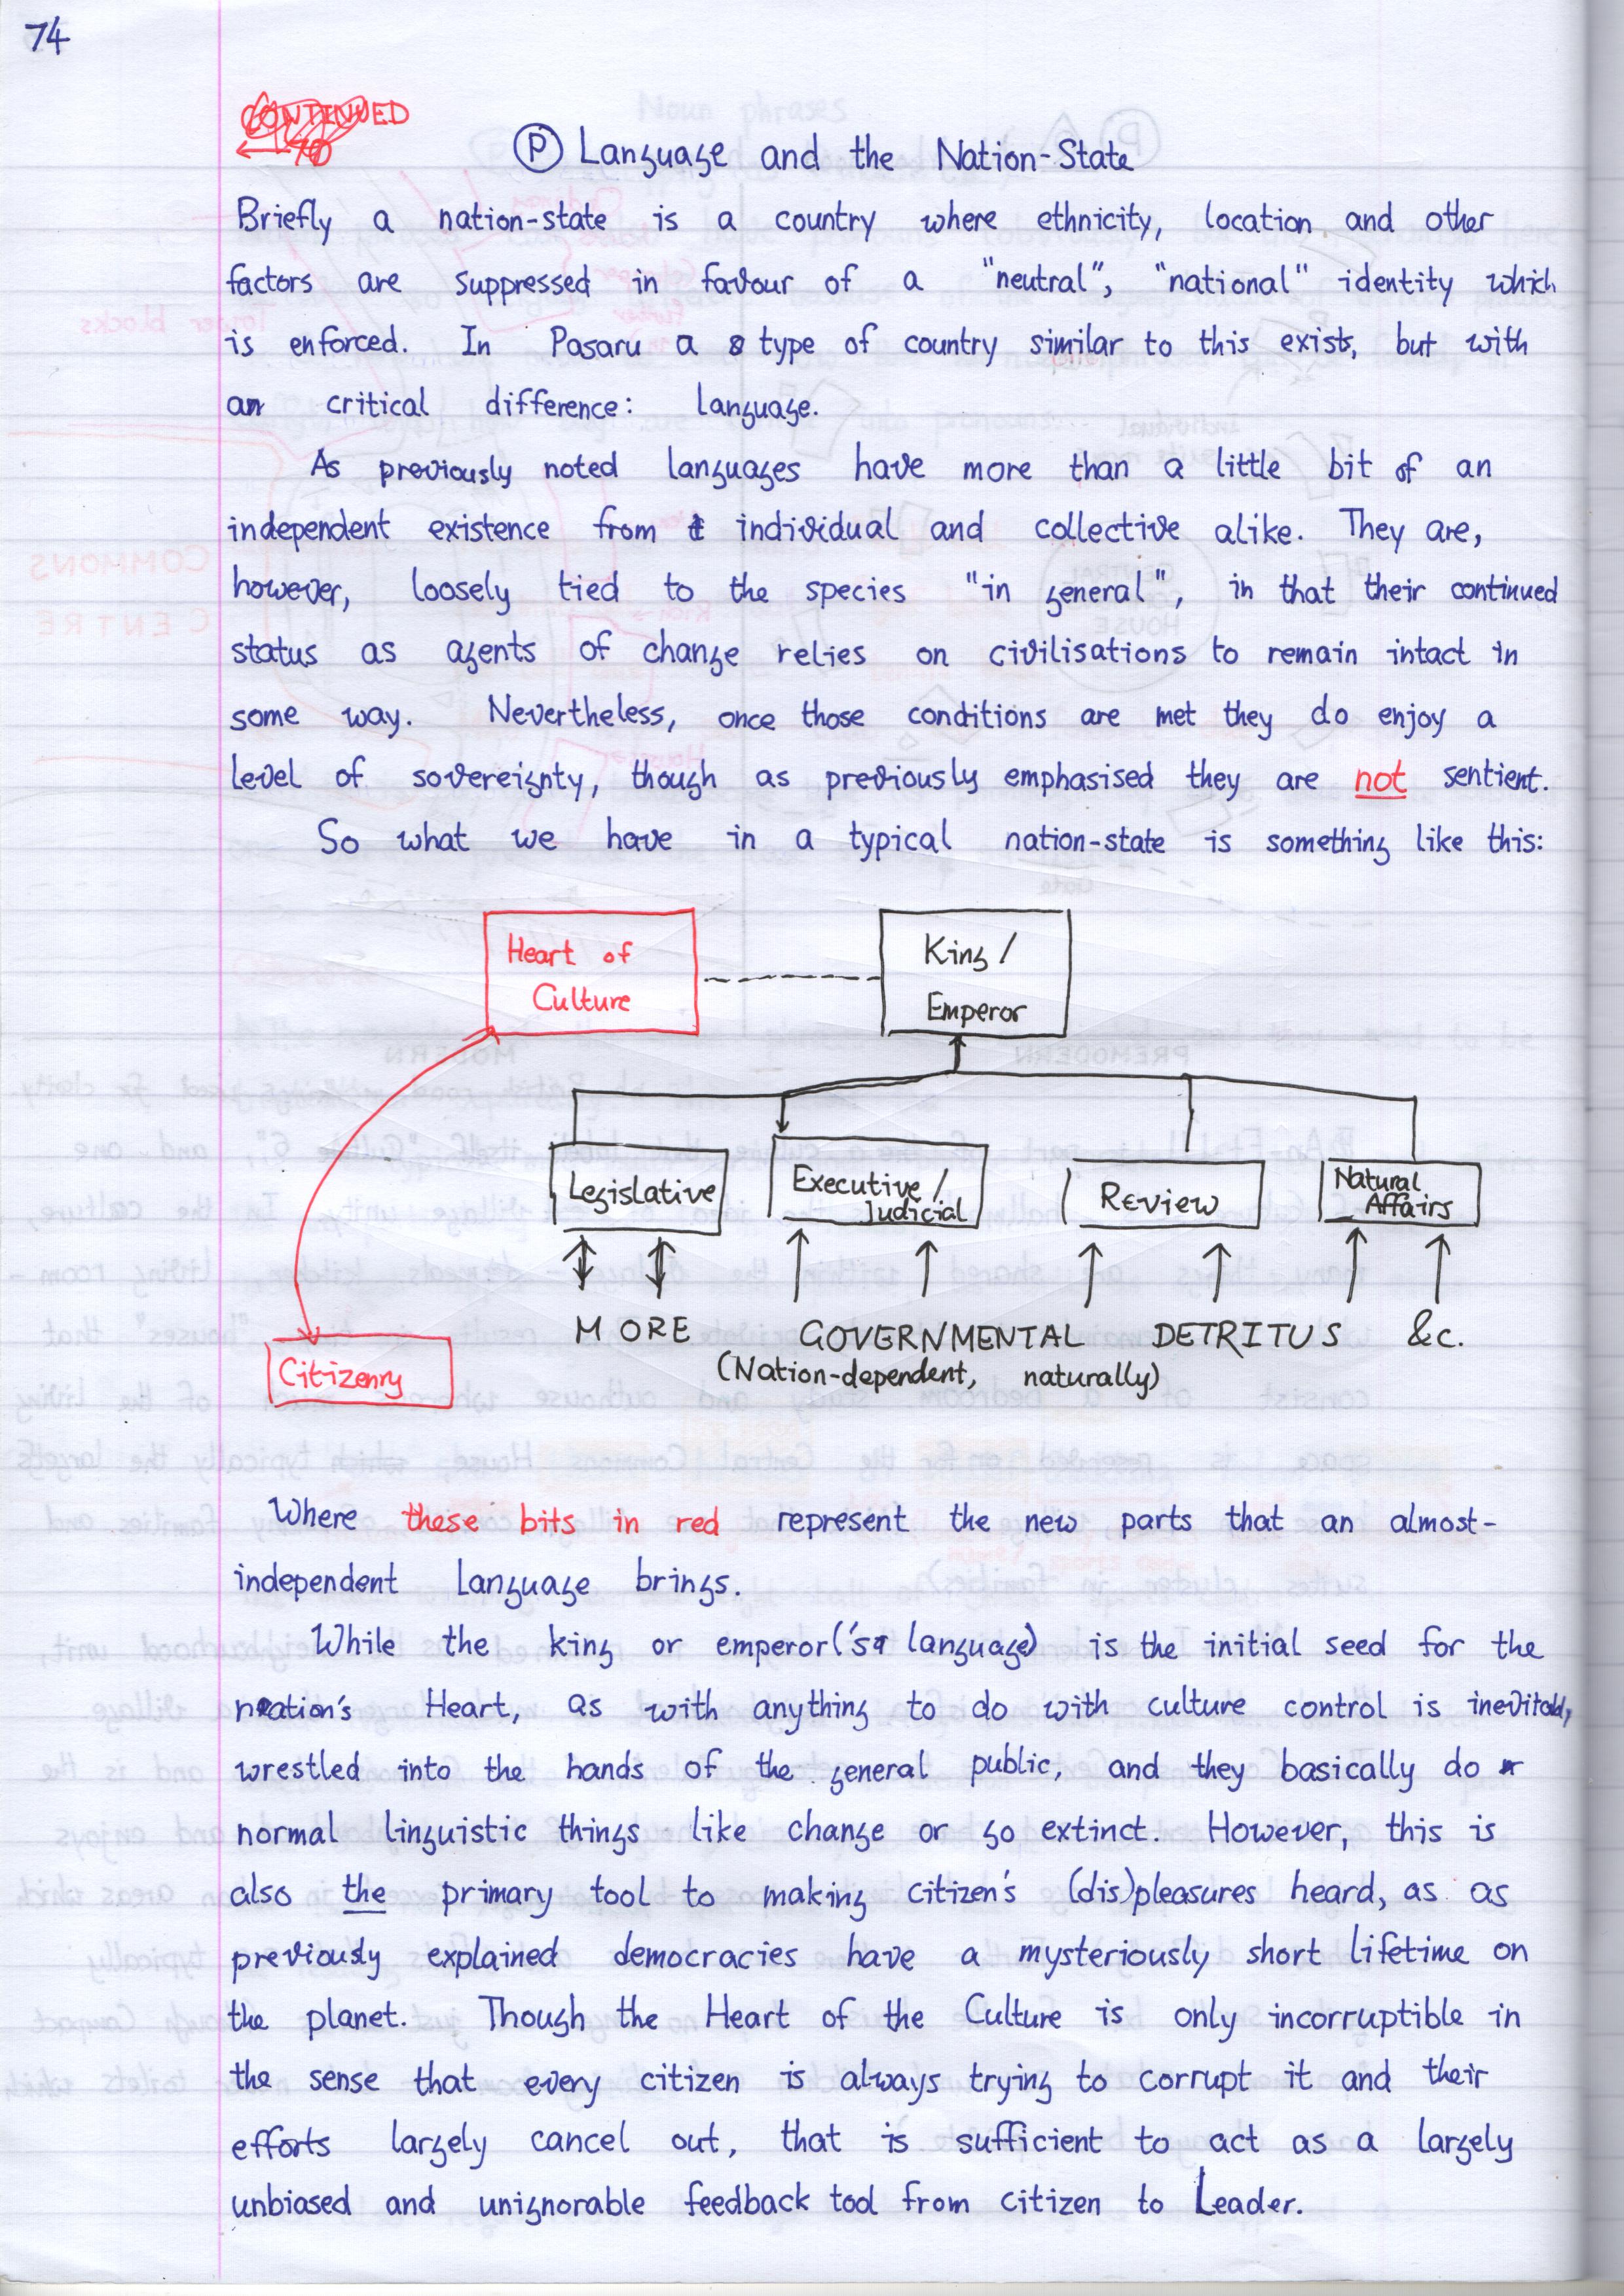 74
CONTINUED
Ⓟ Language and the Nation-State
Briefly a nation-state is a country where ethnicity, location and other
factors are suppressed in favour of a "neutral", "national" identity which
is enforced. In Pasaru a type of country similar to this exists, but with
a critical difference: language.
As previously noted languages have more than a little bit of an
independent existence from individual and collective alike. They are,
however, loosely tied to the species "in general", in that their continued
status as agents of change relies on civilisations to remain intact in
some way. Nevertheless, once those conditions are met they do enjoy a
level of sovereignty, though as previously emphasised they are not sentient.
So what we have in a typical nation-state is something like this:
Heart of
Culture
King /
Emperor
Legislative
Executive /
Judicial
Review
Natural
Affairs
MORE GOVERNMENTAL DETRITUS &c.
(Nation-dependent, naturally)
Citizenry
Where these bits in red represent the new parts that an almost-
independent language brings.
While the king or emperor('s language) is the initial seed for the
nation's Heart, as with anything to do with culture control is
wrestled into the hands of the general public, and they basically do
normal linguistic things like change or go extinct. However, this is
also the primary tool to making citizen's (dis)pleasures heard, as as
previously explained democracies have a mysteriously short lifetime on
the planet. Though the Heart of the Culture is only incorruptible in
the sense that every citizen is always trying to corrupt it and their
efforts largely cancel out, that is sufficient to act as a largely
unbiased and unignorable feedback tool from citizen to Leader.